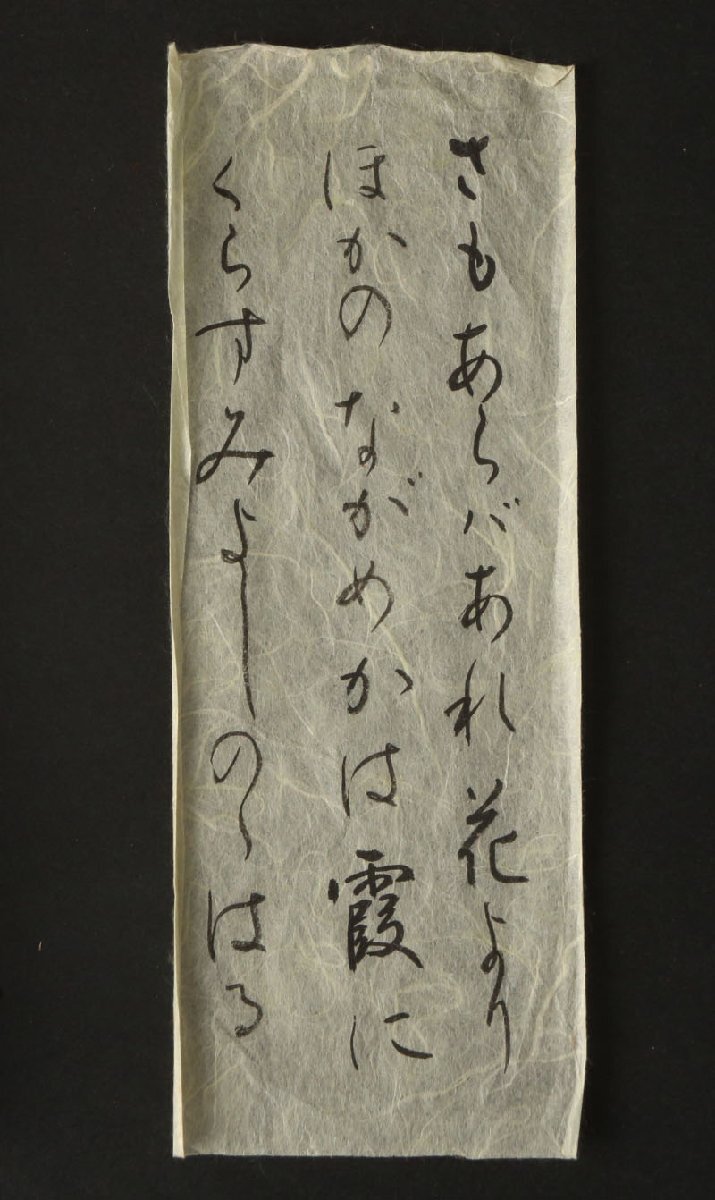 さもあらバあれ花より
ほかのながめかは霞に
くらすみよしのゝはる